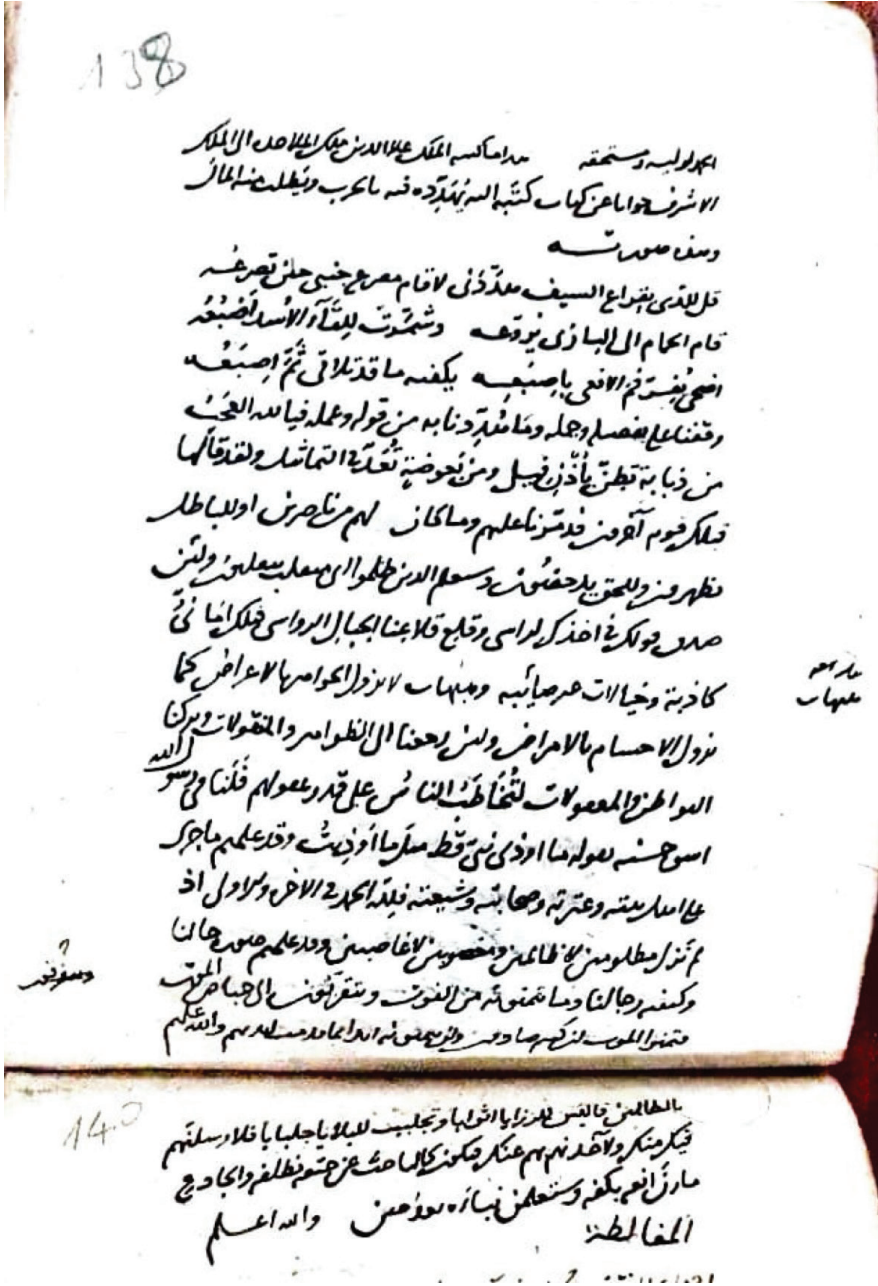 138
الحمد لوليه ومستحقه هذا ما كتبه الملك علاء الدين ملك الملاحدة الى الملك
الاشرف جوابا عن كتاب كتبه اليه يهدده فيه بالحرب ويطلب منه المال
وهذه صورته
قل للذي بقراع السيف هددني لا قام مصرع جنبي حين تصرعه
قام الحمام الى البازي يروعه وشمرت للقاء الأسد أضبعه
اضحى يسد فم الافعى باصبعه يكفيه ما قد تلاقي ثم اصبعه
وقفنا على تفصيله وجمله وما هددنا به من قوله وعمله فيا لله العجب
من ذبابة تطن بأذن فيل ومن بعوضة تعد في التماثيل ولقد قالها
قبلك قوم آخرون فدمرنا عليهم وما كان لهم من ناصرين او للباطل
تظهرون وللحق تدحضون وسيعلم الذين ظلموا اي منقلب ينقلبون ولئن
صدق قولك في اخذك لراسي وقلع قلاعنا الجبال الرواسي فتلك اماني
كاذبة وخيالات غير صائبة وهيهات لا تزول الجواهر بالاعراض كما
تزول الاجسام بالامراض ولئن رجعنا الى الظواهر والمنقولات وتركنا
البواطن والمعقولات لنخاطب الناس على قدر عقولهم فلنا في رسول الله
اسوة حسنة لقوله ما اوذي نبي قط مثل ما أوذيت وقد علمتم ما جرى
على اهل بيته وعترته وصحابته وشيعته فلله الحمد في الاخرة والاولى اذ
لم نزل مظلومين لا ظالمين ومغصوبين لا غاصبين وقد علمتم صورة حالنا
وكيفية رجالنا وما يتمنونه من الفوت ويتقربون الى حياض الموت
فتمنوا الموت ان كنتم صادقين ولن يتمنونه ابدا بما قدمت ايديهم والله عليم
هيهات
140
بالظالمين فالبس للرزايا اثوابا وتجلبب للبلايا جلبابا فلارسلنهم
فيك منك ولآخذنهم بهم عنك فتكون كالباحث عن حتفه بظلفه والجادع
مارن انفه بكفه وستعلمن نباه بعد حين والله اعلم